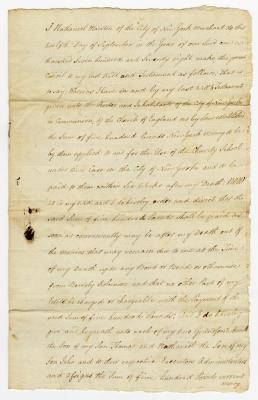 I Nathaniel Marston of the City of New York Merchant do this
twelfth Day of September in the Year of our Lord one
hundred Seven hundred and Seventy eight make this present
Codicil to my last Will and Testament as follows, that is
to say, Whereas I have in and by my last Will & Testament
given unto the Rector and Inhabitants of the City of New York
in Communion of the Church of England as by Law established
the Sum of five hundred Pounds New York money to be
by them applied to and for the Use of the Charity School
under their Care in the City of New York and to be
paid to them within Six Weeks after my Death NOW
it is my Will and I do hereby order and direct that the
said Sum of five hundred Pounds shall be paid as
soon as conveniently may be after my Death out of
the monies that may remain due to me at the Time
of my Death upon any Bond or Bonds or otherwise
from Beverly Robinson and that no other Part of my
Estate be charged or chargeable with the Payment of the
said Sum of five hundred Pounds. And I do hereby
give and bequeath unto each of my two Grandsons
the Son of my Son Thomas and Nathaniel the Son of my
Son John and to their respective Executors Administrators
and Assigns the Sum of five hundred Pounds current
money